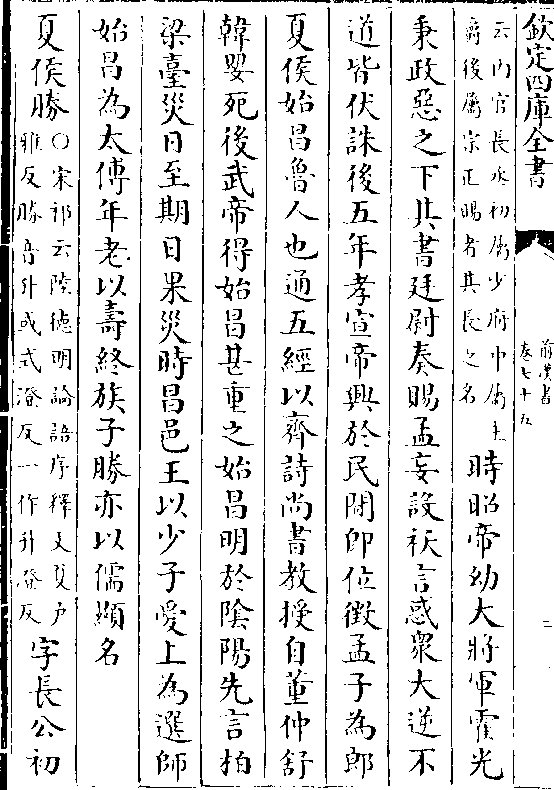 欽定四庫全書
前漢書
卷七十五
二
云内官長丞初屬少府中屬主
爵後屬宗正賜者其長之名
時昭帝幼大將軍霍光
秉政惡之下其書廷尉奏賜孟妄設祅言惑衆大逆不
道皆伏誅後五年孝宣帝興於民間即位徵孟子為郎
夏侯始昌魯人也通五經以齊詩尚書教授自董仲舒
韓嬰死後武帝得始昌甚重之始昌明於陰陽先言柏
梁臺災日至期日果災時昌邑王以少子愛上為選師
始昌為太傅年老以壽終族子勝亦以儒顯名
夏侯勝
○宋祁云陸德明論語序釋文夏户
雅反勝音升或式澄反一作升澄反
字長公初